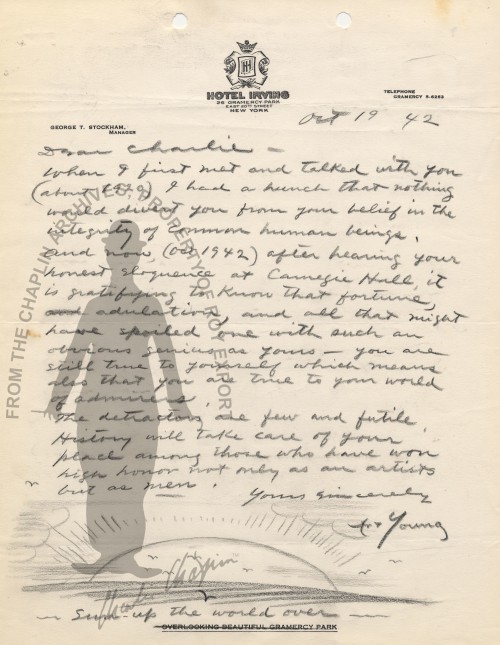 HOTEL IRVING
26 GRAMERCY PARK
EAST 20TH STREET
NEW YORK
TELEPHONE
GRAMERCY 5-6263
GEORGE T. STOCKHAM,
MANAGER
Oct 19 42
Dear Charlie –
When I first met and talked with you
(about 1929) I had a hunch that nothing
would divert you from your belief in the
integrity of common human beings.
And now (Oct 1942) after hearing your
honest eloquence at Carnegie Hall, it
is gratifying to know that fortune,
and adulation, and all that might
have spoiled one with such an
obvious genius as yours – you are
still true to yourself which means
also that you are true to your world
of admirers.
The detractors are few and futile.
History will take care of your
place among those who have won
high honor not only as an artists
but as men.
Yours Sincerely
Art Young
– Sun-up the world over –
OVERLOOKING BEAUTIFUL GRAMERCY PARK
FROM THE CHAPLIN ARCHIVES, PROPERTY OF ROY EXPORT
Charlie Chaplin™